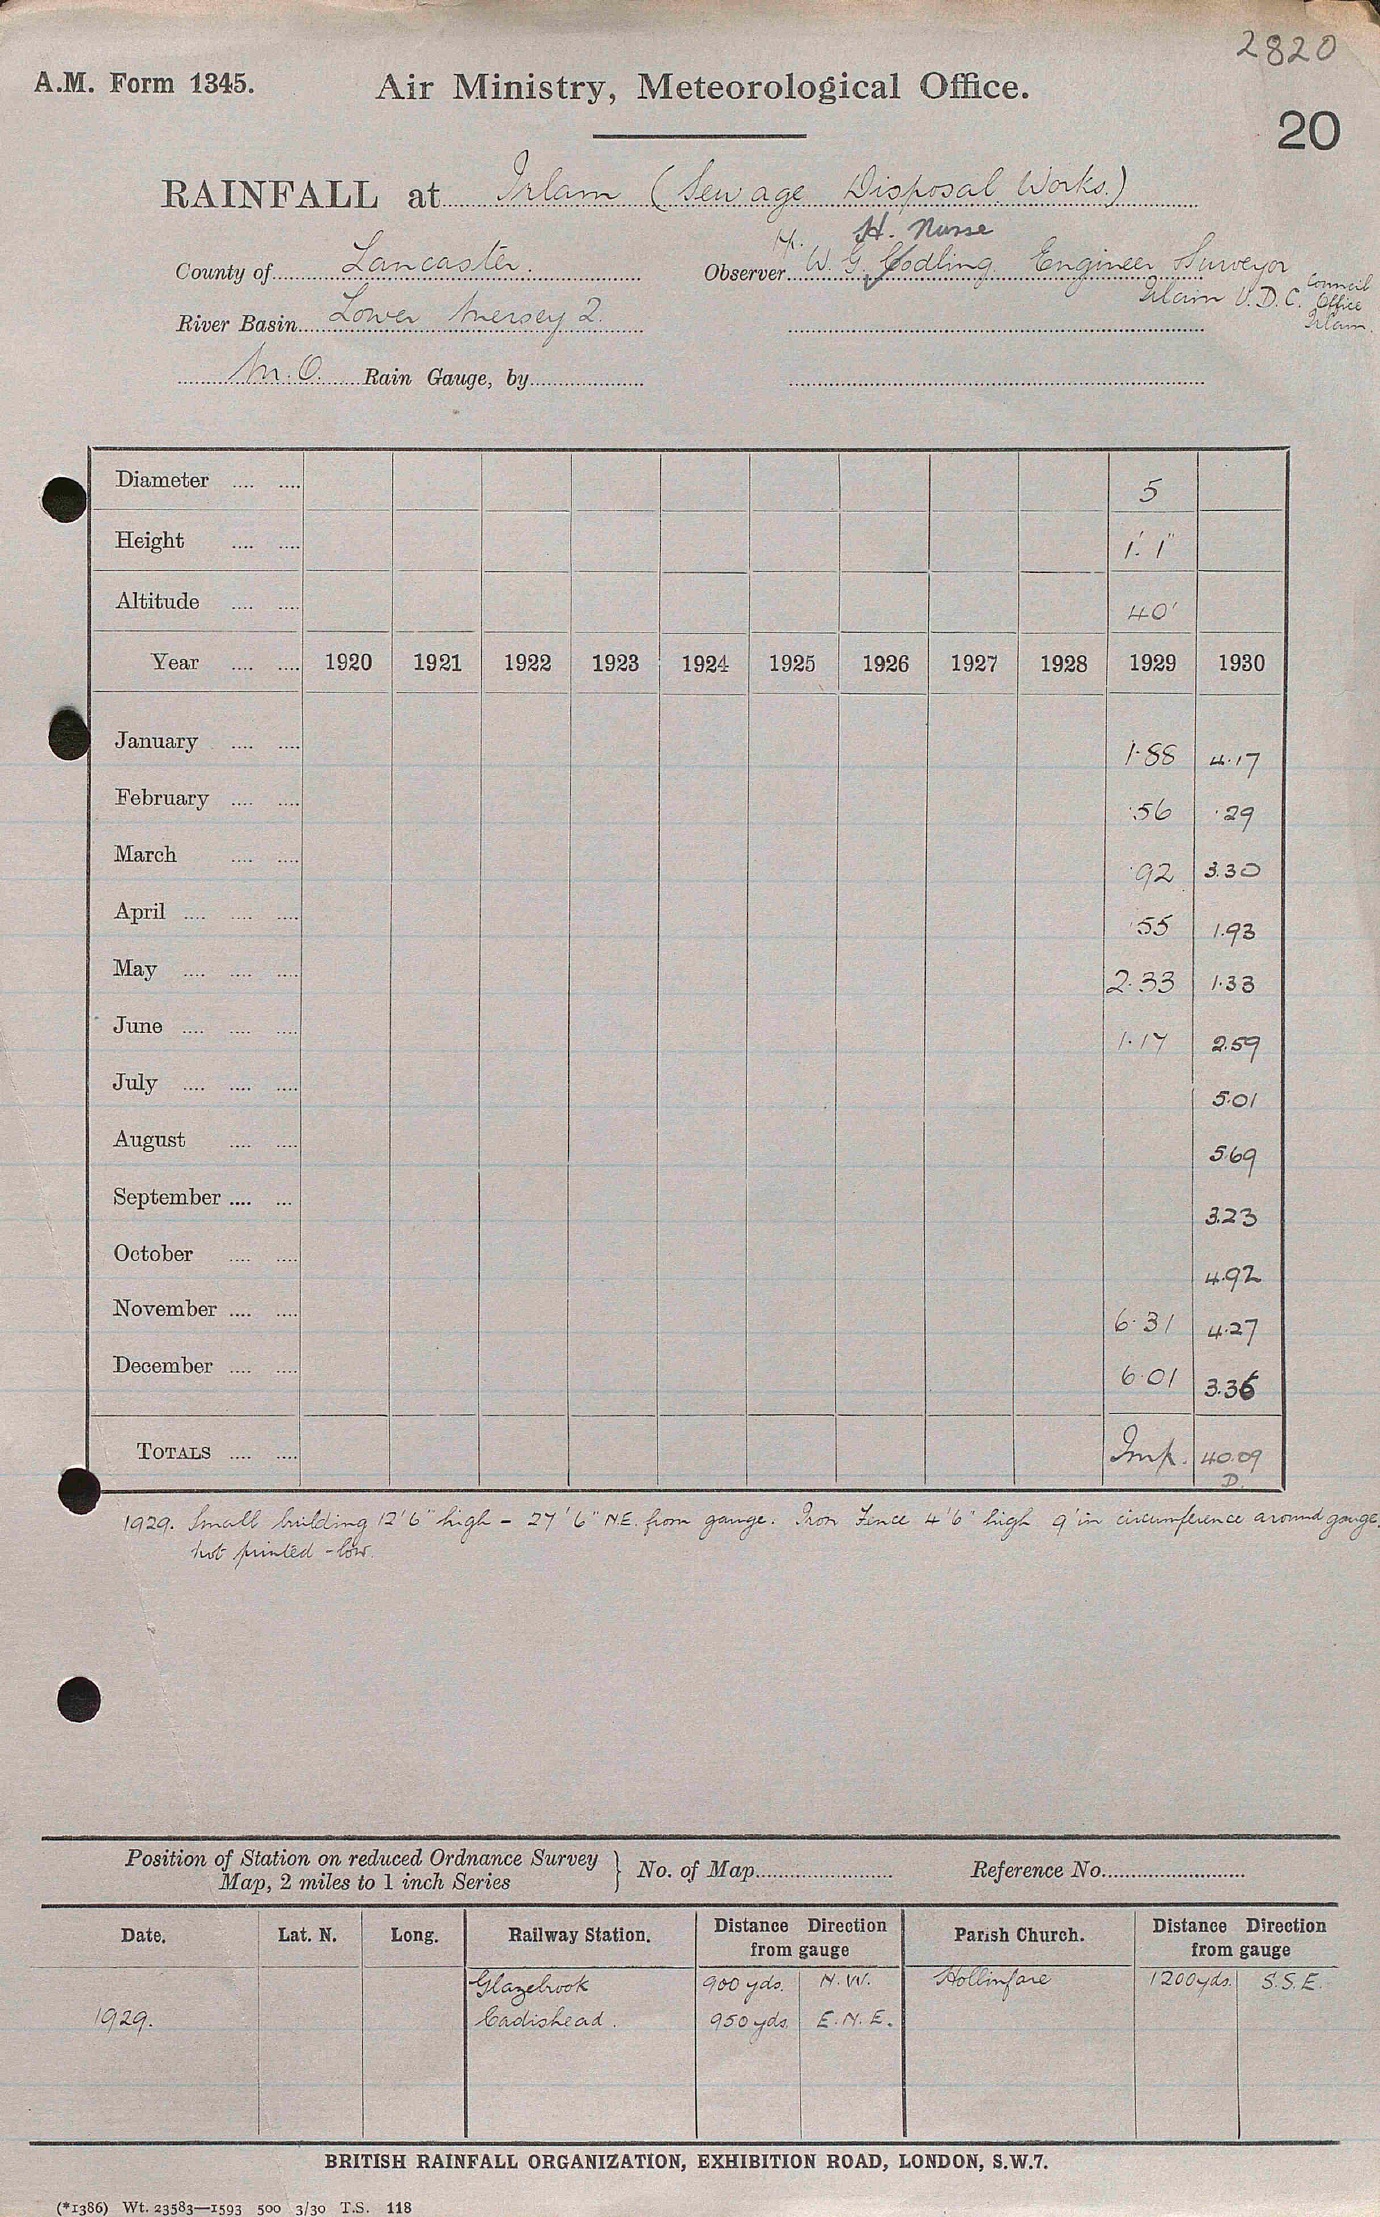 2820
A.M. Form 1345. Air Ministry, Meteorological Office.
20
RAINFALL at Irlam (Sewage Disposal Works.)
H. Nurse
County of Lancaster. Observer W. G. Codling Engineer Surveyor
Irlam U.D.C. Council Office Irlam.
River Basin Lower Mersey 2.
M.O. Rain Gauge, by
Diameter .... .... 5
Height .... .... 1'. 1"
Altitude .... .... 40'
Year .... .... 1920 1921 1922 1923 1924 1925 1926 1927 1928 1929 1930
January .... .... 1.88 4.17
February .... .... .56 .29
March .... .... .92 3.30
April .... .... .... .55 1.93
May .... .... .... 2.33 1.33
June .... .... .... 1.17 2.59
July .... .... .... 5.01
August .... .... 5.69
September .... ... 3.23
October .... .... 4.92
November .... .... 6.31 4.27
December .... .... 6.01 3.36
TOTALS .... .... Imp. 40.09
D.
1929. Small building 12'6" high - 27'6" NE. from gauge. Iron Fence 4'6" high 9' in circumference around gauge.
not printed - low.
Position of Station on reduced Ordnance Survey Map, 2 miles to 1 inch Series } No. of Map Reference No.
Date. Lat. N. Long. Railway Station. Distance Direction from gauge Parish Church. Distance Direction from gauge
Glazebrook 900 yds. N.W. Hollinfare 1200 yds. S.S.E.
1929. Cadishead. 950 yds. E.N.E.
BRITISH RAINFALL ORGANIZATION, EXHIBITION ROAD, LONDON, S.W.7.
(*1386) Wt. 23583—1593 500 3/30 T.S. 118